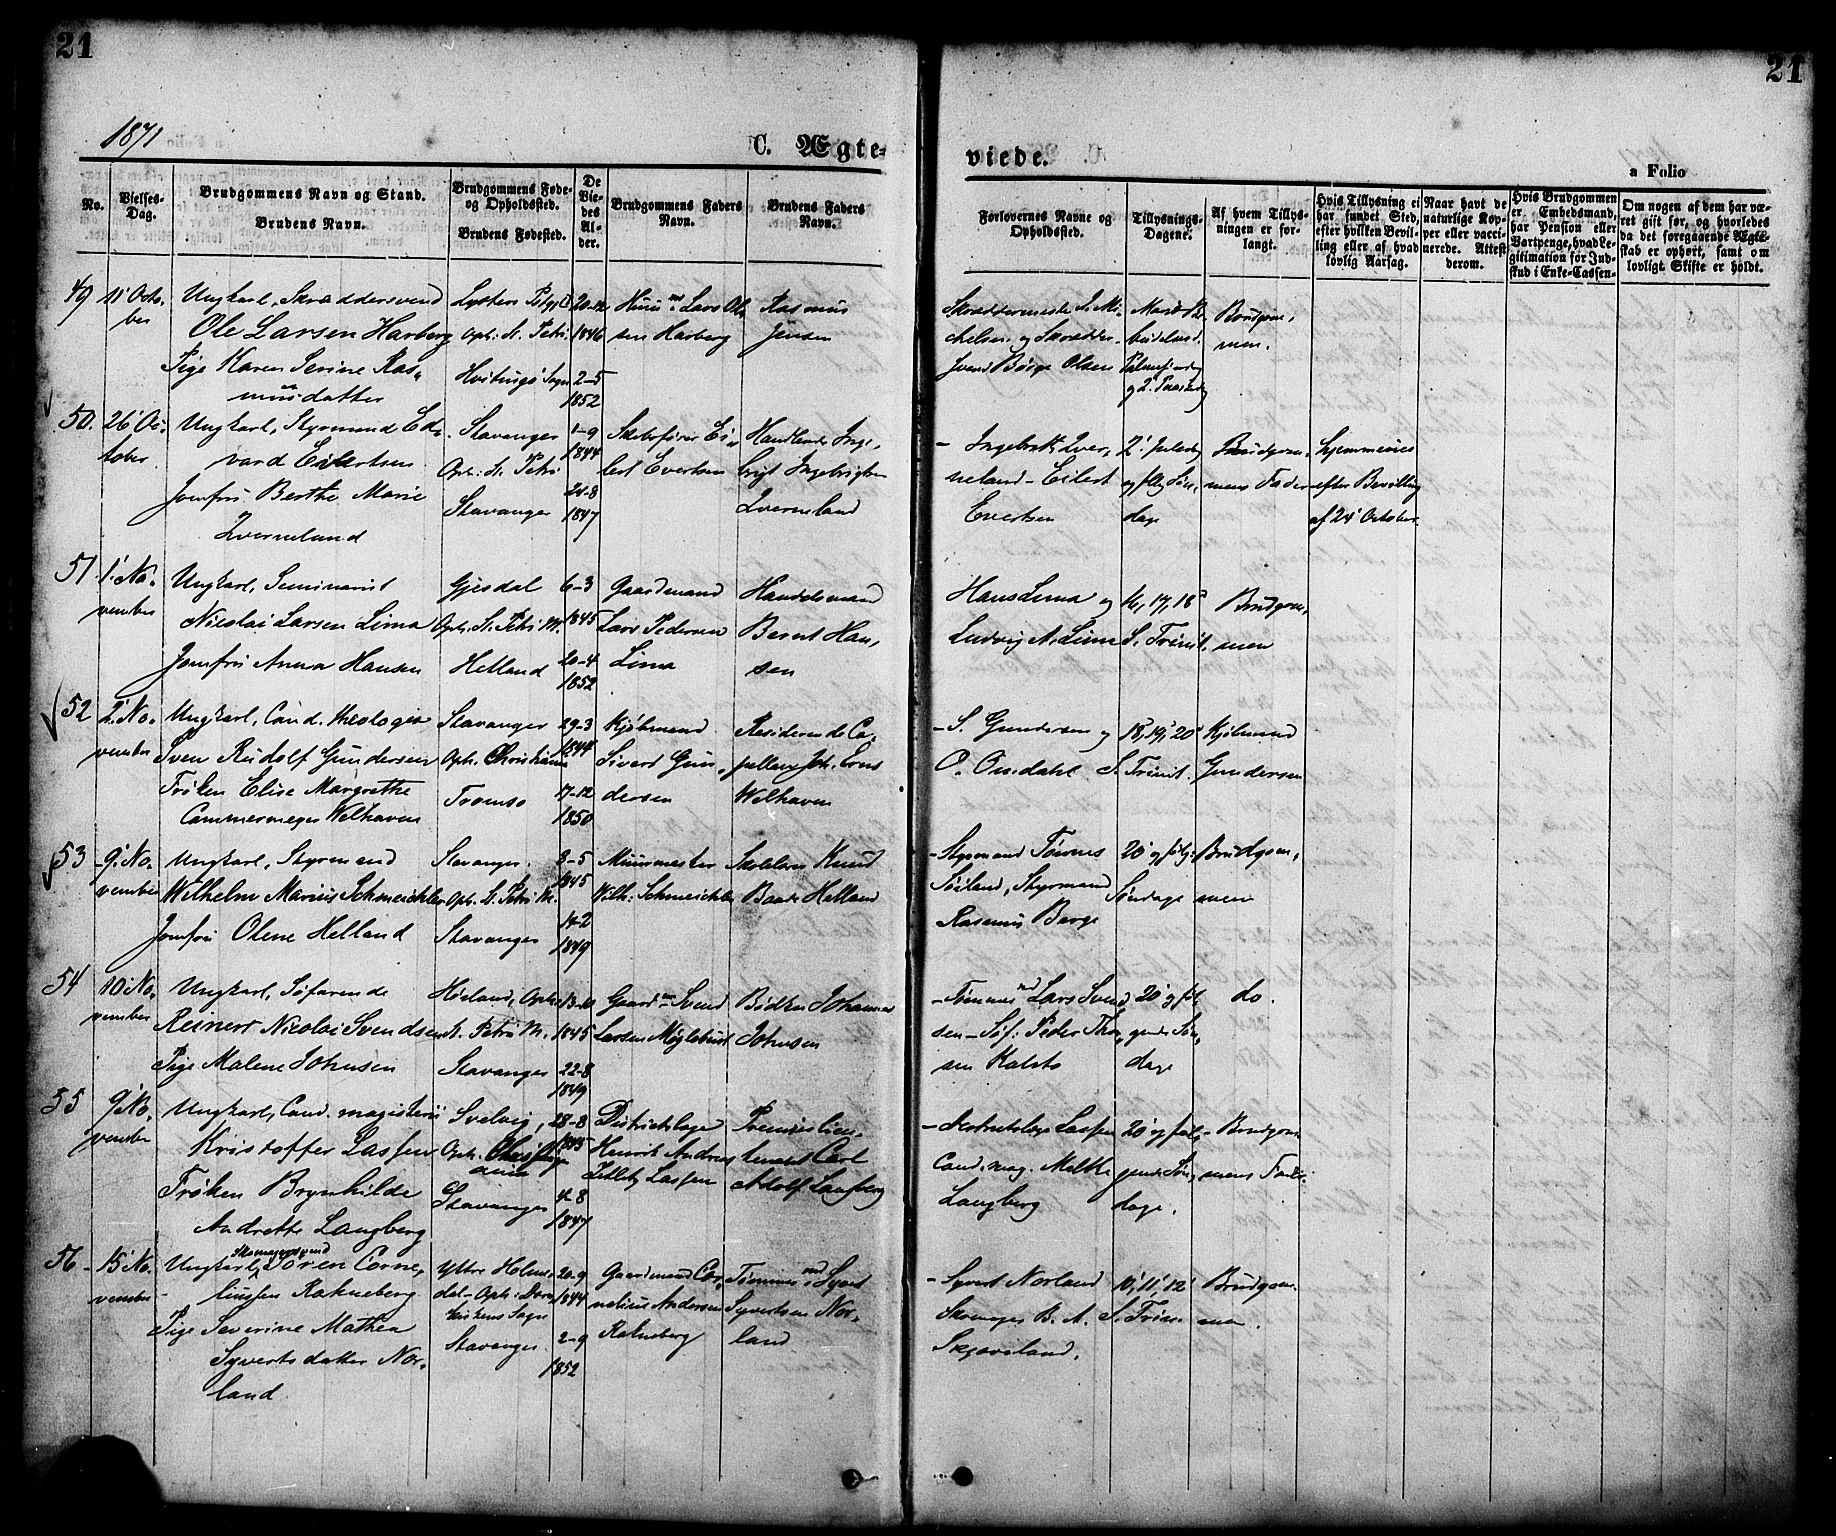 21
21
1871
C. Ægte-
viede.
a Folio
No.
Vielses-
Dag.
Brudgommens Navn og Stand.
Brudens Navn.
Brudgommens Føde-
og Opholdssted.
Brudens Fødested.
De
Vie-
des
Al-
der.
Brudgommens Faders
Navn.
Brudens Faders
Navn.
Forlovernes Navne og
Opholdssted.
Tillysnings-
Dagene.
Af hvem Tillys-
ningen er for-
langt.
Hvis Tillysning ei
har fundet Sted,
efter hvilken Bevil-
ling eller af hvad
lovlig Aarsag.
Naar havt de
naturlige Kop-
per eller vacci-
nerede. Attest
derom.
Hvis Brudgommen
er Embedsmand,
har Pension eller
Vartpenge, hvad Le-
gitimation for Ind-
skud i Enke-Cassen-
Om nogen af dem har væ-
ret gift før, og hvorledes
da det foregaaende Ægte-
skab er ophørt, samt om
lovligt Skifte er holdt.
49 11' Octo-
ber
Ungkarl, Skræddersvend
Ole Larsen Harberg
Pige Karen Serine Ras-
musdatter
Opt: St. Petri
Hvitingsø Sogn
20-12
1846
2-5
1852
Huusmd Lars Ol-
sen Harberg
Rasmus
Jensen
Skræddermester S. Mi-
chelsen og Skrædder-
svend Børge Olsen
Palmesøndag
og 2' Paaskedag
Brudgom-
men.
50. 26' Oc-
tober
Ungkarl, Styrmand Ed-
vard Eilertsen
Jomfru Berthe Marie
Qverneland
Stavanger
Oph: St. Petri
Stavanger
1-9
1844
21-8
1847
Skibsfører Ei-
lert Evertsen
Handlende Inge-
brigt Ingebrigtsen
Qverneland
- Ingebrekt Qver-
neland - Eilert
Evertsen
2' Juledag
og flg. Søn-
dage
Brudgom-
mens Fader
hjemmevies
efter Bevilling
af 24' October.
51 1' No-
vember
Ungkarl, Seminarist
Nicolai Larsen Lima
Jomfru Anna Hansen
Gjesdal
Oph. St. Petri M.
Helland
6-3
1845
20-4
1852
Gaardmand
Lars Pedersen
Lima
Handelsmand
Bernt Han-
sen
Hans Lima og
Ludvig A. Lima
16, 17, 18'
S. Trinit.
Brudgom-
men
52 2' No-
vember
Ungkarl, Cand. theologia
Sven Rudolf Gundersen
Frøken Elise Margrethe
Cammermeyer Welhaven
Stavanger
Oph. Christiania
Tromsø
29-3
1844
17-12
1850
Kjøbmand
Sivert Gun-
dersen
Residerende Ca-
pellan Joh. Ernst
Welhaven
- S. Gundersen og
O. Omdahl
18', 19', 20'
S. Trinit.
Kjøbmand
Gundersen
53 9' No-
vember
Ungkarl, Styrmand
Wilhelm Marius Schmeichler
Jomfru Olene Helland
Stavanger.
Oph. St. Petri M.
Stavanger
8-5
1845
14-2
1849
Muurmester
Wilh. Schmeichler
Skolelærer Knud
Baade Helland
- Styrmand Tønnes
Søiland, Styrmand
Rasmus Berge
20' og følg.
Søndage
Brudgom-
men
54 10' No-
vember
Ungkarl, Søfarende
Reinert Nicolai Svendsen
Pige Malene Johnsen
Høiland, Oph.
St. Petri M.
Stavanger
13-10
1845
22-8
1849
Gaardmand Svend
Larsen Møglebust
Bødker Johannes
Johnsen
- Tømmermd Lars Svend-
sen - Søf: Peder Thor-
sen Kalstø
20' og føl-
gende Søn-
dage
do.
55 9' No-
vember
Ungkarl, Cand. magisterii
Kristoffer Lassen
Frøken Brynhilde
Andrette Langberg
Svelvig,
Oph. Christi-
ania
Stavanger
28-8
1845
4-8
1847
Districtslæge
Henrik Andreas
Zetlitz Lassen
Premierlieu-
tenant Carl
Adolf Langberg
- Destriktslæge Lassen
Cand. mag. Meltke
Langberg
20' og føl-
gende Søn-
dage.
Brudgom-
mens Fader
56 - 15' No-
vember
Skomagersvend
Ungkarl, Søren Corne-
liussen Rakneberg
Pige Severine Mathea
Syvertsdatter Nor-
land.
Ytre Holme-
dal - Oph: Dom-
kirkens Sogn
Stavanger.
20-9
1844
2-9
1852
Gaardmand Cor-
nelius Andersen
Rakneberg
Tømmermd Syvert
Syvertsen Nor-
land
- Syvert Norland
Skomager B. A.
Skjæveland.
10', 11', 12'
S. Trin.
Brudgom-
men.